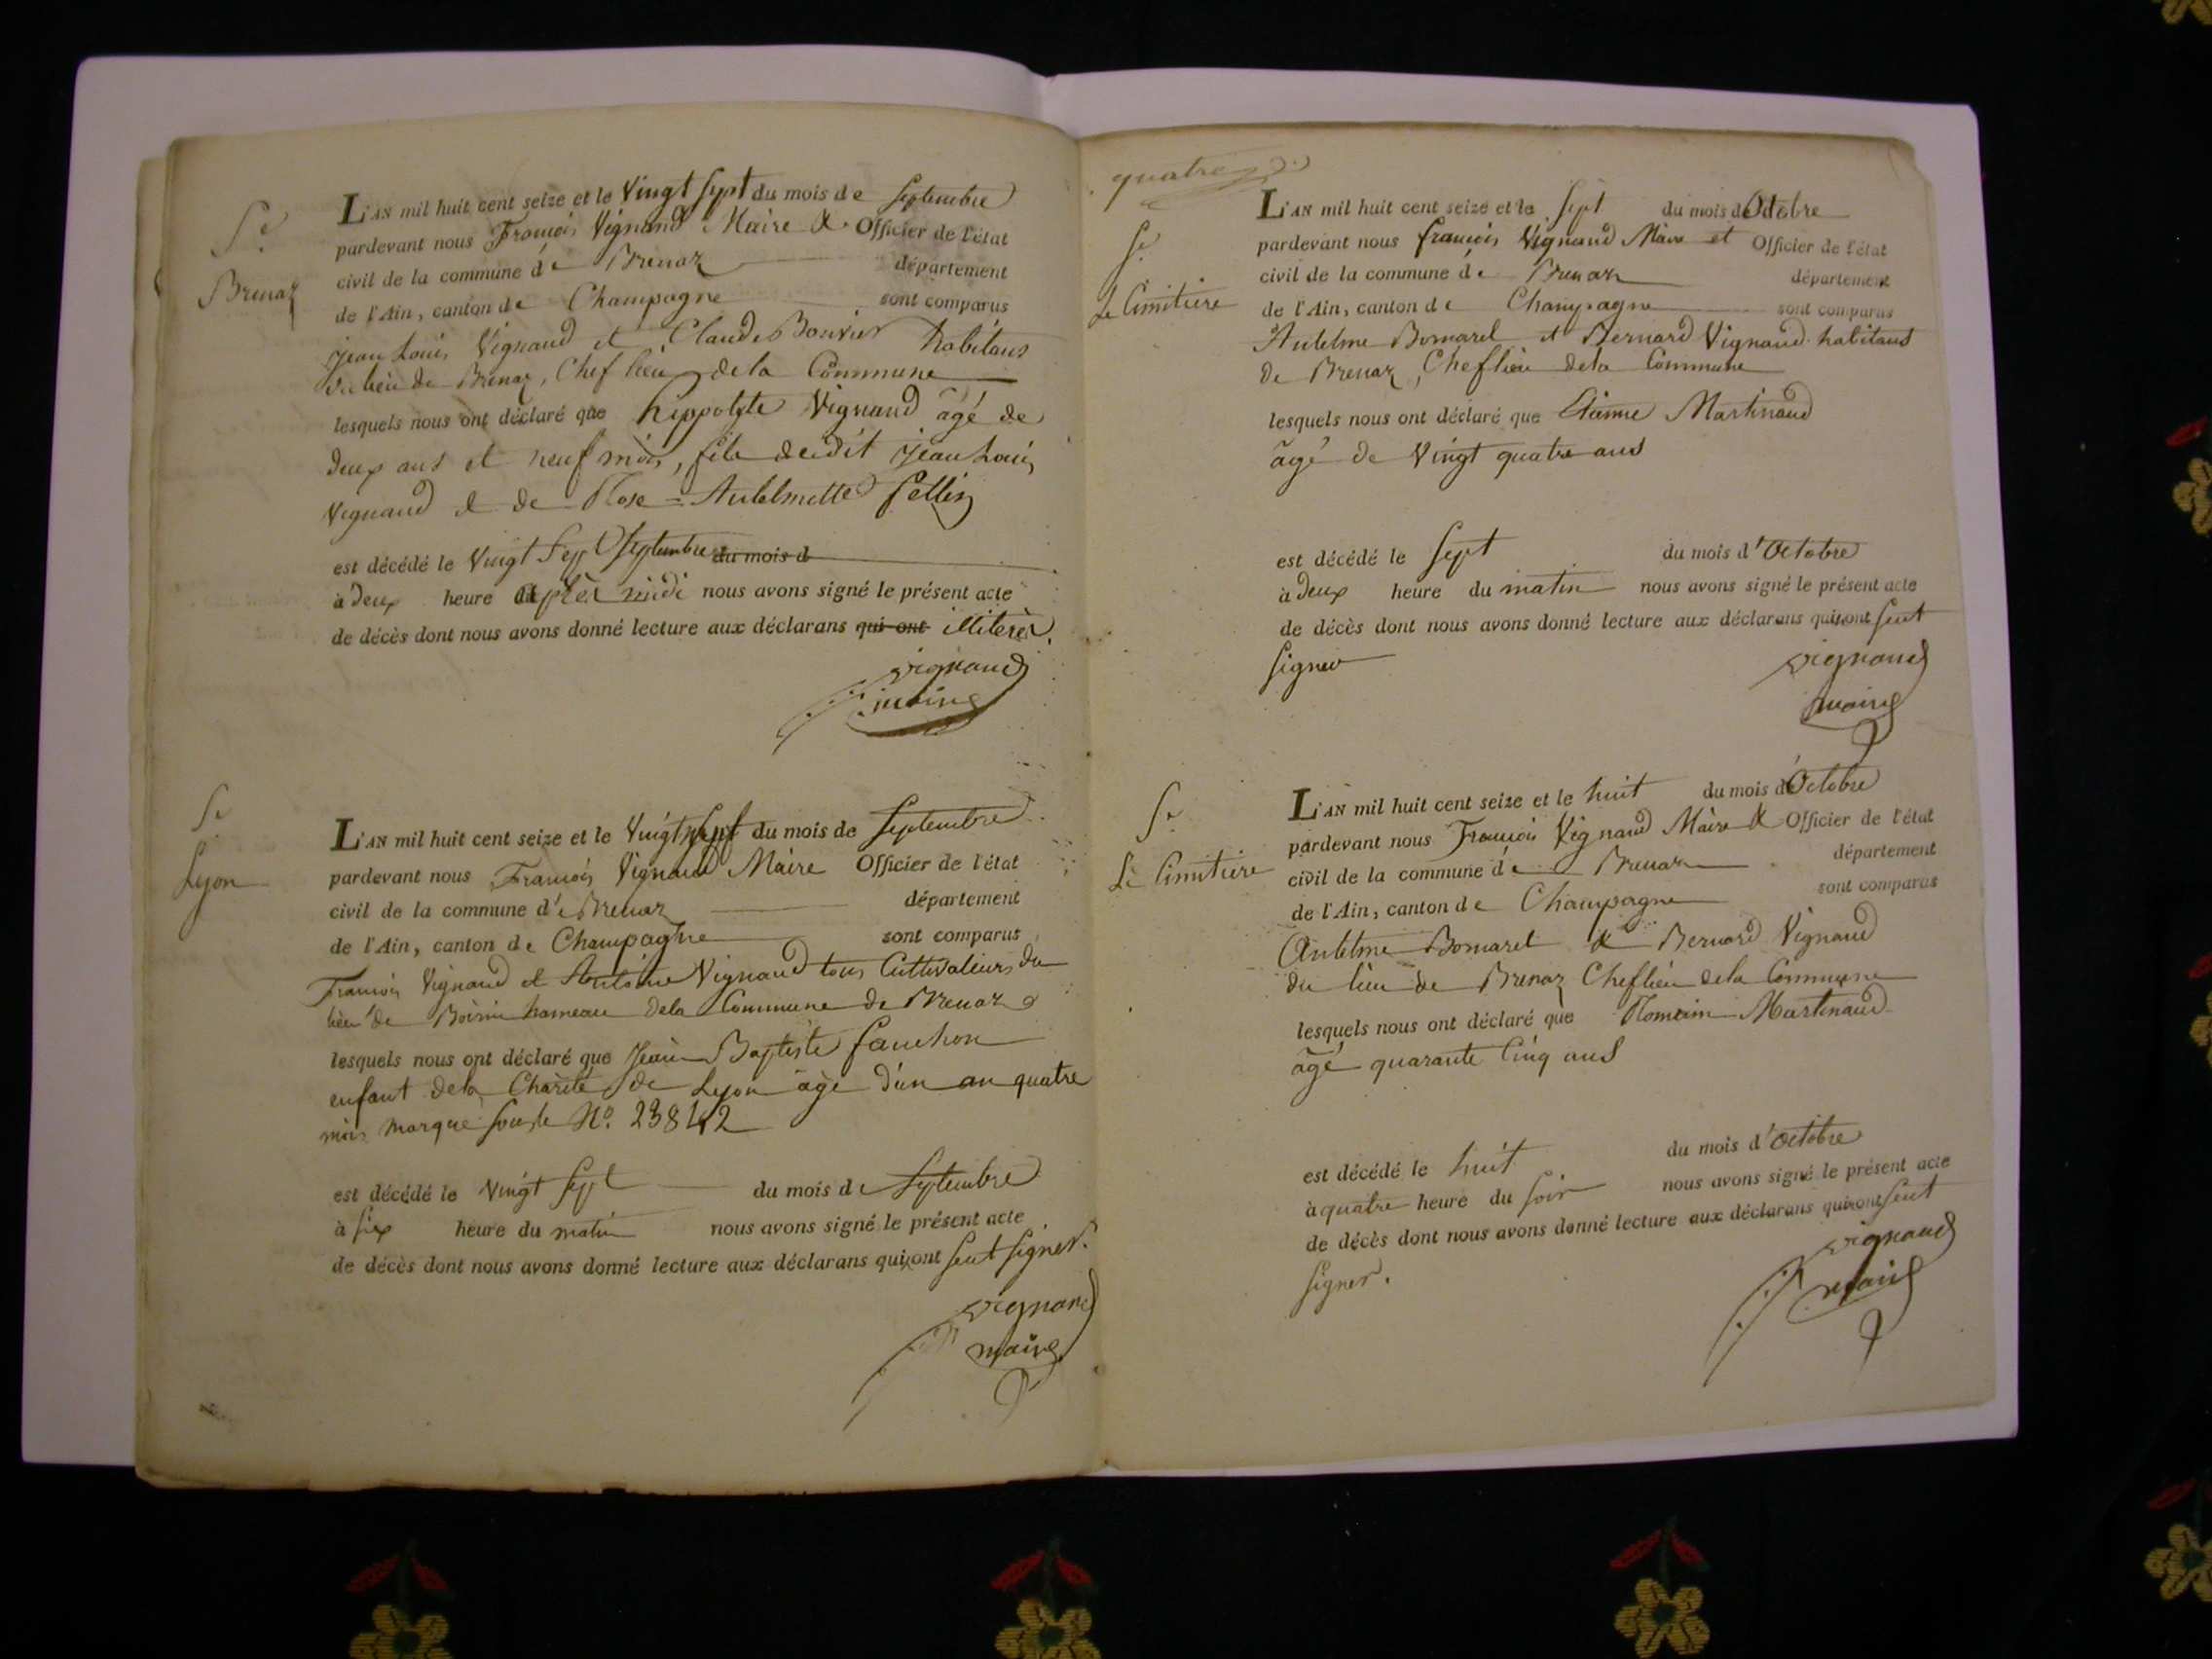 Brenaz
L'AN mil huit cent seize et le Vingt Sept du mois de Septembre
pardevant nous François Vignand Maire & Officier de l'état
civil de la commune de Brenaz département
de l'Ain, canton de Champagne sont comparus
jean Louis Vignand et Claude Bonvier habitans
du lieu de Brenaz, Chef lieu de la Commune
lesquels nous ont déclaré que hippolyte Vignand âgé de
deux ans et neuf mois, fils dudit jean Louis
Vignand & de Rose = Anthelmette
est décédé le Vingt Sept Septembre du mois d
à deux heure après midi nous avons signé le présent acte
de décès dont nous avons donné lecture aux déclarans qui ont illiterés.
vignand
maire
Lyon
L'AN mil huit cent seize et le Vingt Sept du mois de Septembre
pardevant nous François Vignand Maire Officier de l'état
civil de la commune de Brenaz département
de l'Ain, canton de Champagne sont comparus
François Vignand et Antoine Vignand tous Cultivateurs du
lieu de hameau de la Commune de Brenaz
lesquels nous ont déclaré que Jean Baptiste fanchon
enfant de la Charité de Lyon âgé d'un an quatre
mois marqué sous le N.o 23842
est décédé le vingt Sept du mois de Septembre
à six heure du matin nous avons signé le présent acte
de décès dont nous avons donné lecture aux déclarans qui n'ont seut signer.
vignand
maire
quatre
Le Cimitiere
L'AN mil huit cent seize et le Sept du mois d'Octobre
pardevant nous françois Vignand Maire et Officier de l'état
civil de la commune de Brenaz département
de l'Ain, canton de Champagne sont comparus
Antelme Bomarel et Bernard Vignand habitans
de Brenaz, Chef lieu de la Commune
lesquels nous ont déclaré que Etienne Martinand
âgé de Vingt quatre ans
est décédé le Sept du mois d'Octobre
à deux heure du matin nous avons signé le présent acte
de décès dont nous avons donné lecture aux déclarans qui n'ont seut
signer
vignand
maire
Le Cimitiere
L'AN mil huit cent seize et le huit du mois d'Octobre
pardevant nous François Vignand Maire & Officier de l'état
civil de la commune de Brenaz département
de l'Ain, canton de Champagne sont comparus
Antelme Bomarel & Bernard Vignand
du lieu de Brenaz Chef lieu de la Commune
lesquels nous ont déclaré que Romain Martinand
âgé quarante Cinq ans
est décédé le huit du mois d'Octobre
à quatre heure du soir nous avons signé le présent acte
de décès dont nous avons donné lecture aux déclarans qui n'ont seut
signer.
vignand
maire